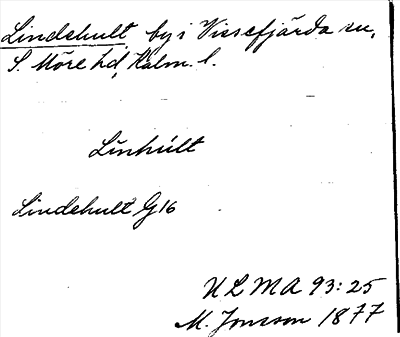 Lindehult, by i Vissefjärda sn,
S. Möre hd, Kalm. l.
Linhult
Lindehult G16
ULMA 93:25
M. Jonsson 1877